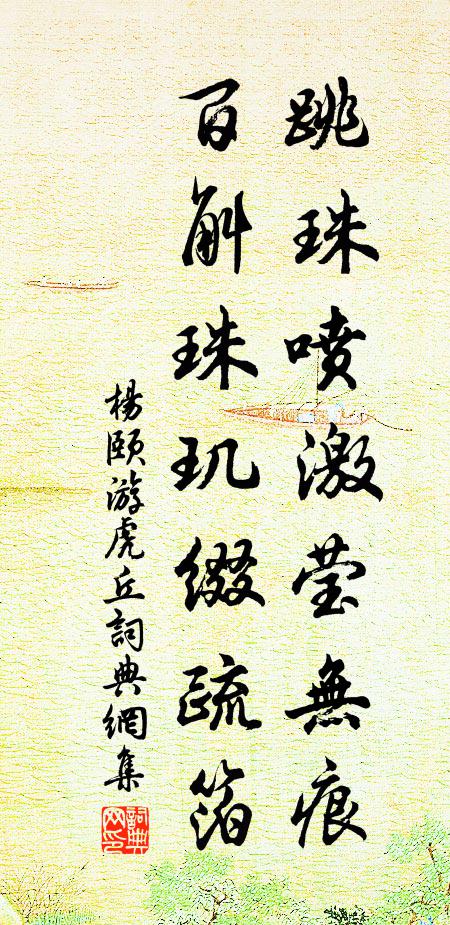 跳珠喷激莹無痕
百斛珠玑缀疏箔
楊颐游虎丘詞典網集
詞典网印